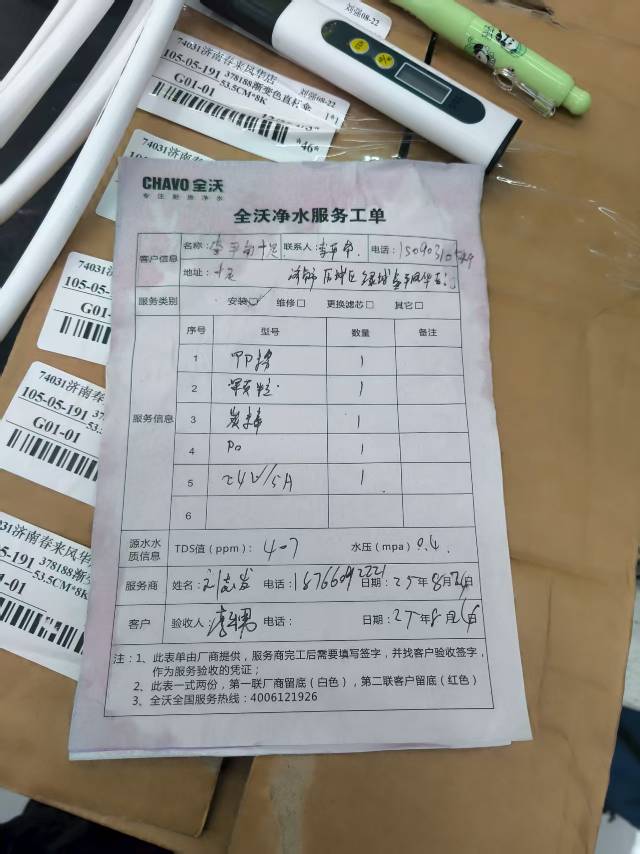 刘强08-22
74031济南春来风华店
刘强08-22
105-05-191 378188渐变色直杆伞
53.5CM*8K
1*1
G01-01
*46*
74031济南
105-05-191
G01
74031济南
105-05-191
G01-01
74031济南春
105-05-191 378
53.5
G01-01
74031济南春来风华
05-191 378188渐变
53.5CM*8
G01-01
CHAVO 全沃
专注智造净水
全沃净水服务工单
客户信息
名称： 联系人： 电话：
地址：
服务类别 安装☑ 维修□ 更换滤芯□ 其它□
服务信息
序号 型号 数量 备注
1 PP棉 1
2 颗粒 1
3 炭棒 1
4 Ro 1
5 24V/5A 1
6
源水水质信息 TDS值（ppm）：4-7 水压（mpa）0.4.
服务商 姓名： 电话： 日期：25年8月24日
客户 验收人 电话： 日期：25年8月 日
注：1、此表单由厂商提供，服务商完工后需要填写签字，并找客户验收签字，
作为服务验收的凭证；
2、此表一式两份，第一联厂商留底（白色），第二联客户留底（红色）
3、全沃全国服务热线：4006121926